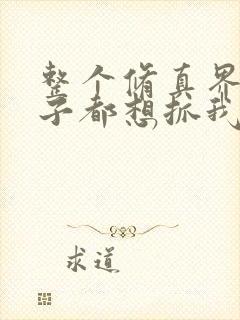 整个脩真界
子都想抓我
求道